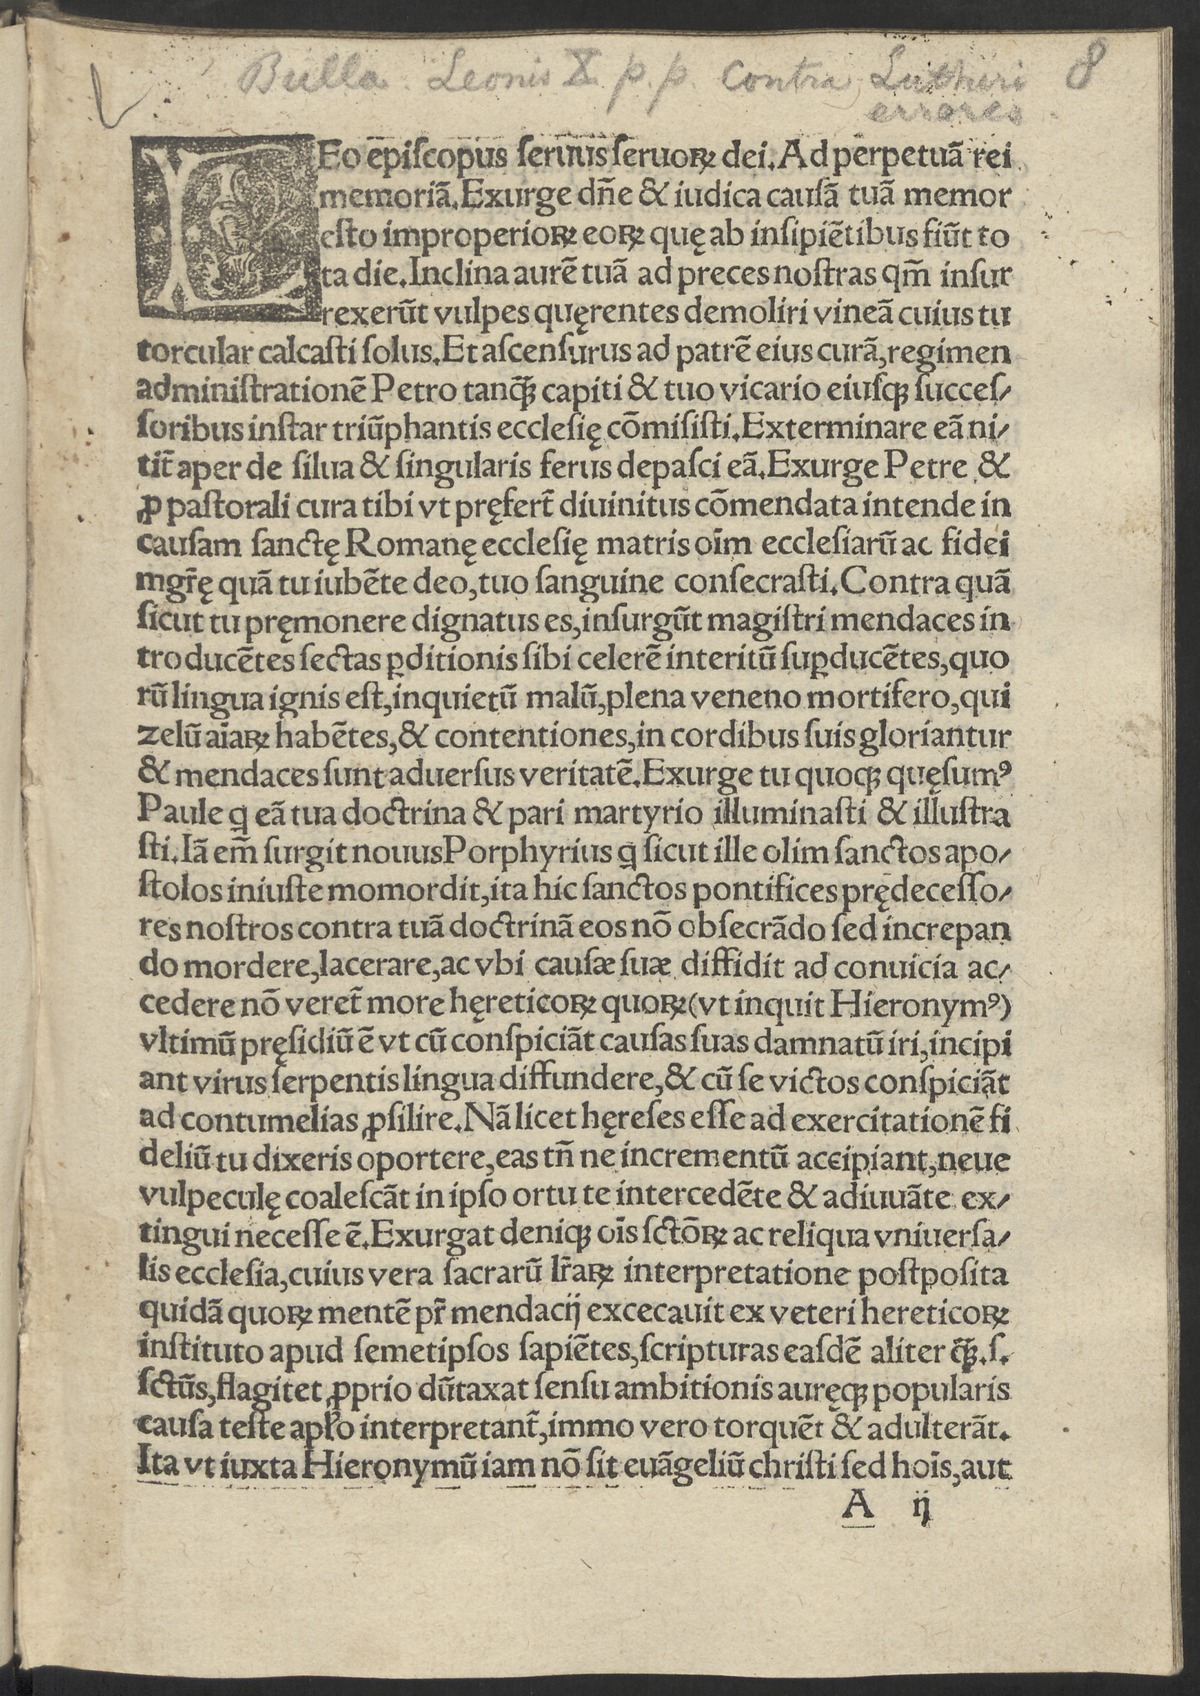 Bulla Leonis X p.p. contra Lutheri 8
errores
LEo ep̄iſcopus ſeruus ſeruoꝝ dei. Ad perpetuā rei
memoriā. Exurge dn̄e & iudica cauſā tuā memor
eſto improperioꝝ eoꝝ quę ab inſipiētibus fiūt to
ta die. Inclina aurē tuā ad preces noſtras qm̄ inſur
rexerūt vulpes quęrentes demoliri vineā cuius tu
torcular calcaſti ſolus. Et aſcenſurus ad patrē eius curā, regimen
adminiſtrationē Petro tanꝙ̄ capiti & tuo vicario eiuſꝗ ſucceſ/
ſoribus inſtar triūphantis eccleſię cōmiſiſti. Exterminare eā ni/
tit̄ aper de ſilua & ſingularis ferus depaſci eā. Exurge Petre &
ꝓ paſtorali cura tibi vt pręfert̄ diuinitus cōmendata intende in
cauſam ſanctę Romanę eccleſię matris oīm eccleſiarū ac fidei
mgr̄ę quā tu iubēte deo, tuo ſanguine conſecraſti. Contra quā
ſicut tu pręmonere dignatus es, inſurgūt magiſtri mendaces in
troducētes ſectas ꝑditionis ſibi celerē interitū ſuꝑducētes, quo
rū lingua ignis eſt, inquietū malū, plena veneno mortifero, qui
zelū aīaꝝ habētes, & contentiones, in cordibus ſuis gloriantur
& mendaces ſunt aduerſus veritatē. Exurge tu quoꝗ quęſumꝰ
Paule q̄ eā tua doctrina & pari martyrio illuminaſti & illuſtra
ſti. Iā em̄ ſurgit nouus Porphyrius q̄ ſicut ille olim ſanctos apo/
ſtolos iniuſte momordit, ita hic ſanctos pontifices prędeceſſo/
res noſtros contra tuā doctrinā eos nō obſecrādo ſed increpan
do mordere, lacerare, ac vbi cauſæ ſuæ diffidit ad conuicia ac/
cedere nō veret̄ more hęreticoꝝ quoꝝ (vt inquit Hieronymꝰ)
vltimū pręſidiū ē vt cū conſpiciāt cauſas ſuas damnatū iri, incipi
ant virus ſerpentis lingua diffundere, & cū ſe victos conſpiciāt
ad contumelias ꝓſilire. Nā licet hęreſes eſſe ad exercitationē fi
deliū tu dixeris oportere, eas tn̄ ne incrementū accipiant, neue
vulpeculę coaleſcāt in ipſo ortu te intercedēte & adiuuāte ex/
tingui neceſſe ē. Exurgat deniꝗ oīs ſctōꝝ ac reliqua vniuerſa/
lis eccleſia, cuius vera ſacrarū lr̄aꝝ interpretatione poſtpoſita
quidā quoꝝ mentē pr̄ mendacij excecauit ex veteri hereticoꝝ
inſtituto apud ſemetipſos ſapiētes, ſcripturas eaſdē aliter ꝙ̄.ſ.
ſctūs, flagitet ꝓprio dūtaxat ſenſu ambitionis auręꝗ popularis
cauſa teſte apł̄o interpretant̄, immo vero torquēt & adulterāt.
Ita vt iuxta Hieronymū iam nō ſit euāgeliū chriſti ſed hoīs, aut
A ij